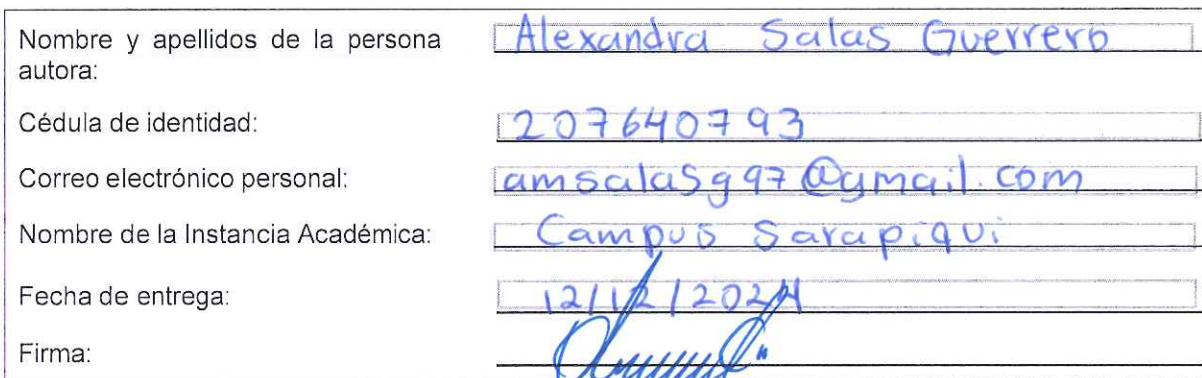 Nombre y apellidos de la persona Alexandra Salas Guerrero
autora:
Cédula de identidad: 207640793
Correo electrónico personal: amsalasg97@gmail.com
Nombre de la Instancia Académica: Campus Sarapiqui
Fecha de entrega: 12/12/2024
Firma: